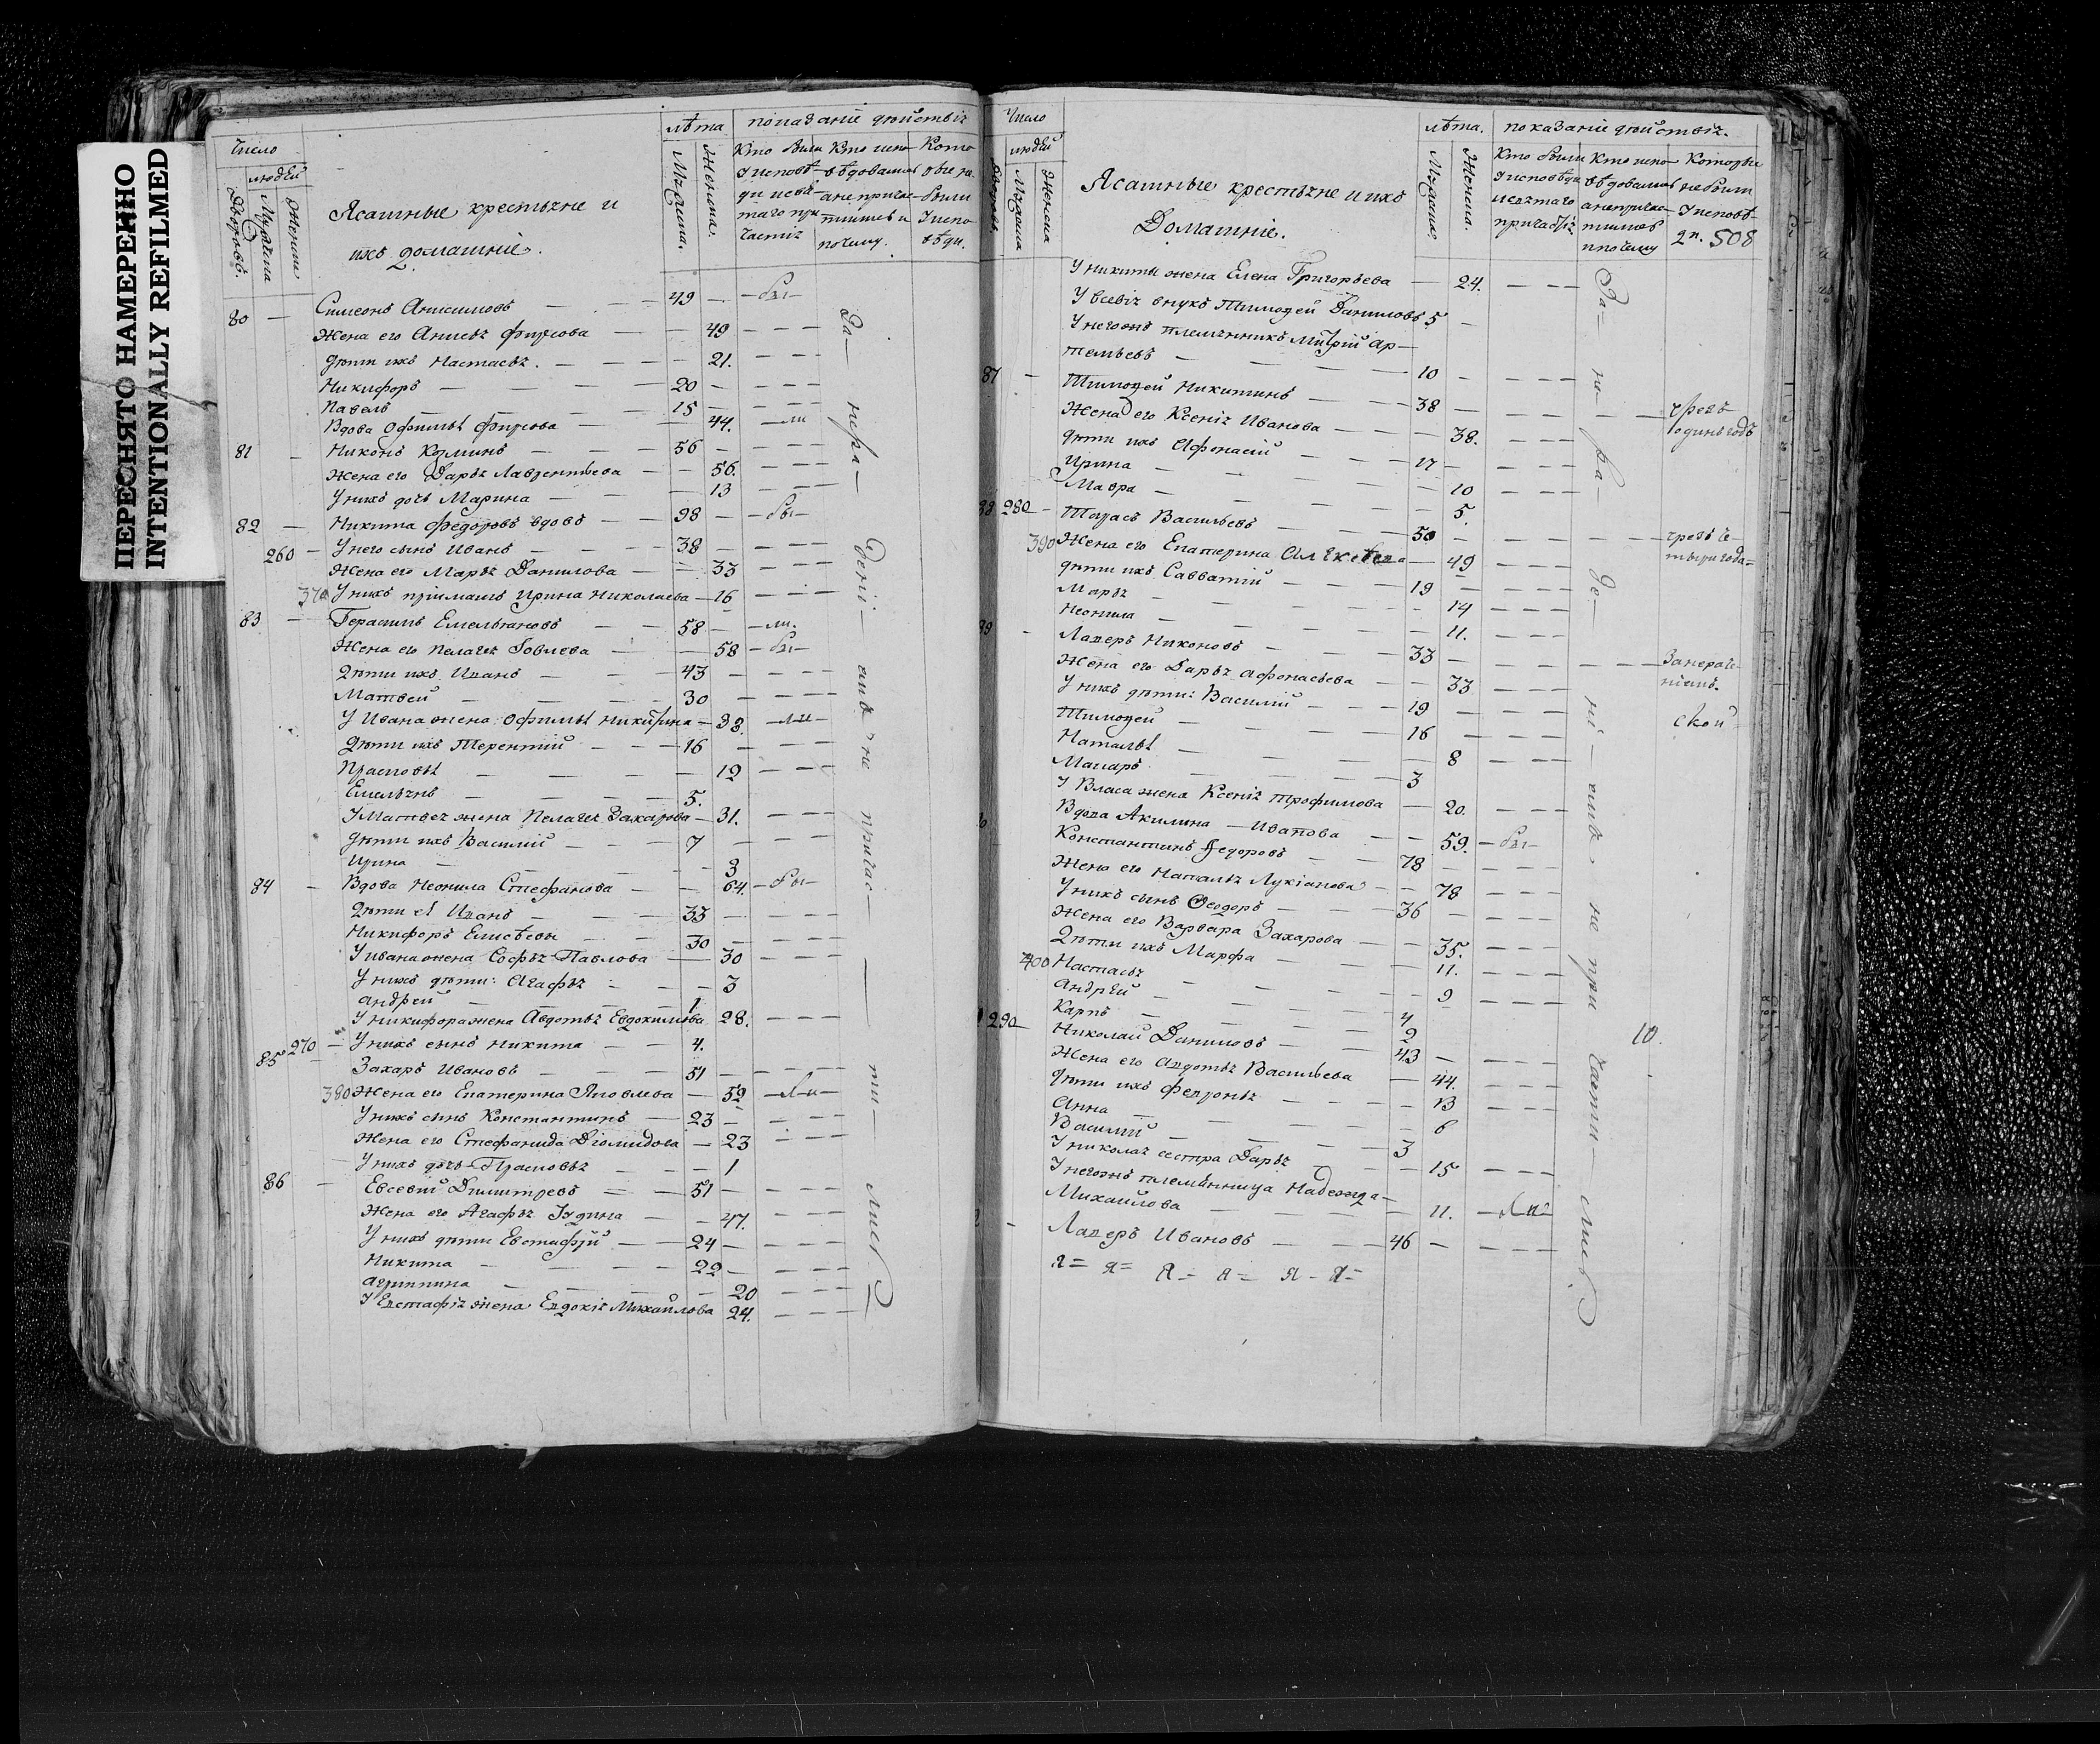 ПЕРЕСНЯТО НАМЕРЕННО
INTENTIONALLY REFILMED
Число
людей
Дворовъ.
Мужеска
Женска
Ясашные крестьяне и
ихъ домашніе.
лѣта
Мужеска.
Женска.
показаніе дѣйствіе
Кто были
Кто испо-
Кото
80
Симеонъ Анисимовъ 49 бы
Жена его Анисья Фирсова 49
дѣти ихъ Настасья 21.
Никифоръ 20
Павелъ 15
Вдова Офимья Фирсова 44. ли
81 Никонъ Козминъ 56
Жена его Дарья Лаврентьева 56.
У нихъ дочь Марина 13
82 Никита Федоровъ вдовъ 98 бы
260 У него сынъ Иванъ 38
Жена его Марья Данилова 33
370 У нихъ пріимышъ Ирина Николаева 16
83 Герасимъ Емельяновъ 58 ли.
Жена его Пелагея Іовлева 58 бы
Дѣти ихъ Иванъ 43
Матвей 30
У Ивана жена Офимья Никитина 38. ли
Дѣти ихъ Терентій 16
Прасковья 12
Емельянъ 5.
У Матвея жена Пелагея Захарова 31.
дѣти ихъ Василий 7
Ирина 3
84 Вдова Неонила Стефанова 64. бы
Дѣти ея Иванъ 33
Никифоръ Елисѣевы 30
У Ивана жена Софья Павлова 30
У нихъ дѣти: Агафья 3
Андрей 1
У Никифора жена Авдотья Евдокимова 28.
270 У нихъ сынъ Никита 4.
85 Захаръ Ивановъ 51
380 Жена его Екатерина Яковлева 52 ли
У нихъ сынъ Константинъ 23
Жена его Стефанида Діомидова 23
У нихъ дочь Прасковья 1
86 Евсевій Димитревъ 51
Жена его Агафья Іудина 47.
У нихъ дѣти Евстафій 24
Никита 22
Агриппина 20
У Евстафія жена Евдокія Михайлова 24.
За нера дѣніи аще не причас ти лис
Число
людей
Дворовъ.
Мужеска
Женска
Ясашные крестьяне и ихъ
Домашніе.
лѣта.
Мужеска
Женска.
показаніе дѣйствіе.
Кто были
Кто испо-
Которые
не были
508
У Никиты жена Елена Григорьева 24.
У Евсевія внукъ Тимофей Даниловъ 5
У него же племянникъ Митрій Ар-
темьевъ 10
87 Тимофей Никитинъ 38 чрезъ
одинъ годъ
Жена его Ксенія Иванова 38.
дѣти ихъ Афонасій 17
Ирина 10
Мавра 5.
88 280 Тарасъ Васильевъ 50 чрезъ че-
тыри года
390 Жена его Екатерина Алексѣева 49
дѣти ихъ Савватій 19
Марья 14
Неонила 11.
89 Лаверъ Никоновъ 33 За нераче-
ніемъ.
Жена его Дарья Афонасьева 33
У нихъ дѣти: Василій 19
Тимофей 16
Наталья 8
Макаръ 3
У Власа жена Ксенія Трофимова 20.
Вдова Акилина Иванова 59. бы
Константинъ Федоровъ 78
Жена его Наталья Лукіанова 78
У нихъ сынъ Феодоръ 36
Жена его Варвара Захарова 35.
Дѣти ихъ Марфа 11.
400 Настасья 9
Андрей 4
Карпъ 2
290 Николай Даниловъ 43
Жена его Авдотья Васильева 44.
дѣти ихъ Февронья 13
Анна 6
Василий 3
У Николая сестра Дарья 15
У него же племянница Надежда
Михайлова 11. ли
Лаверъ Ивановъ 46
За не ра де ні аще не при части лис
10.